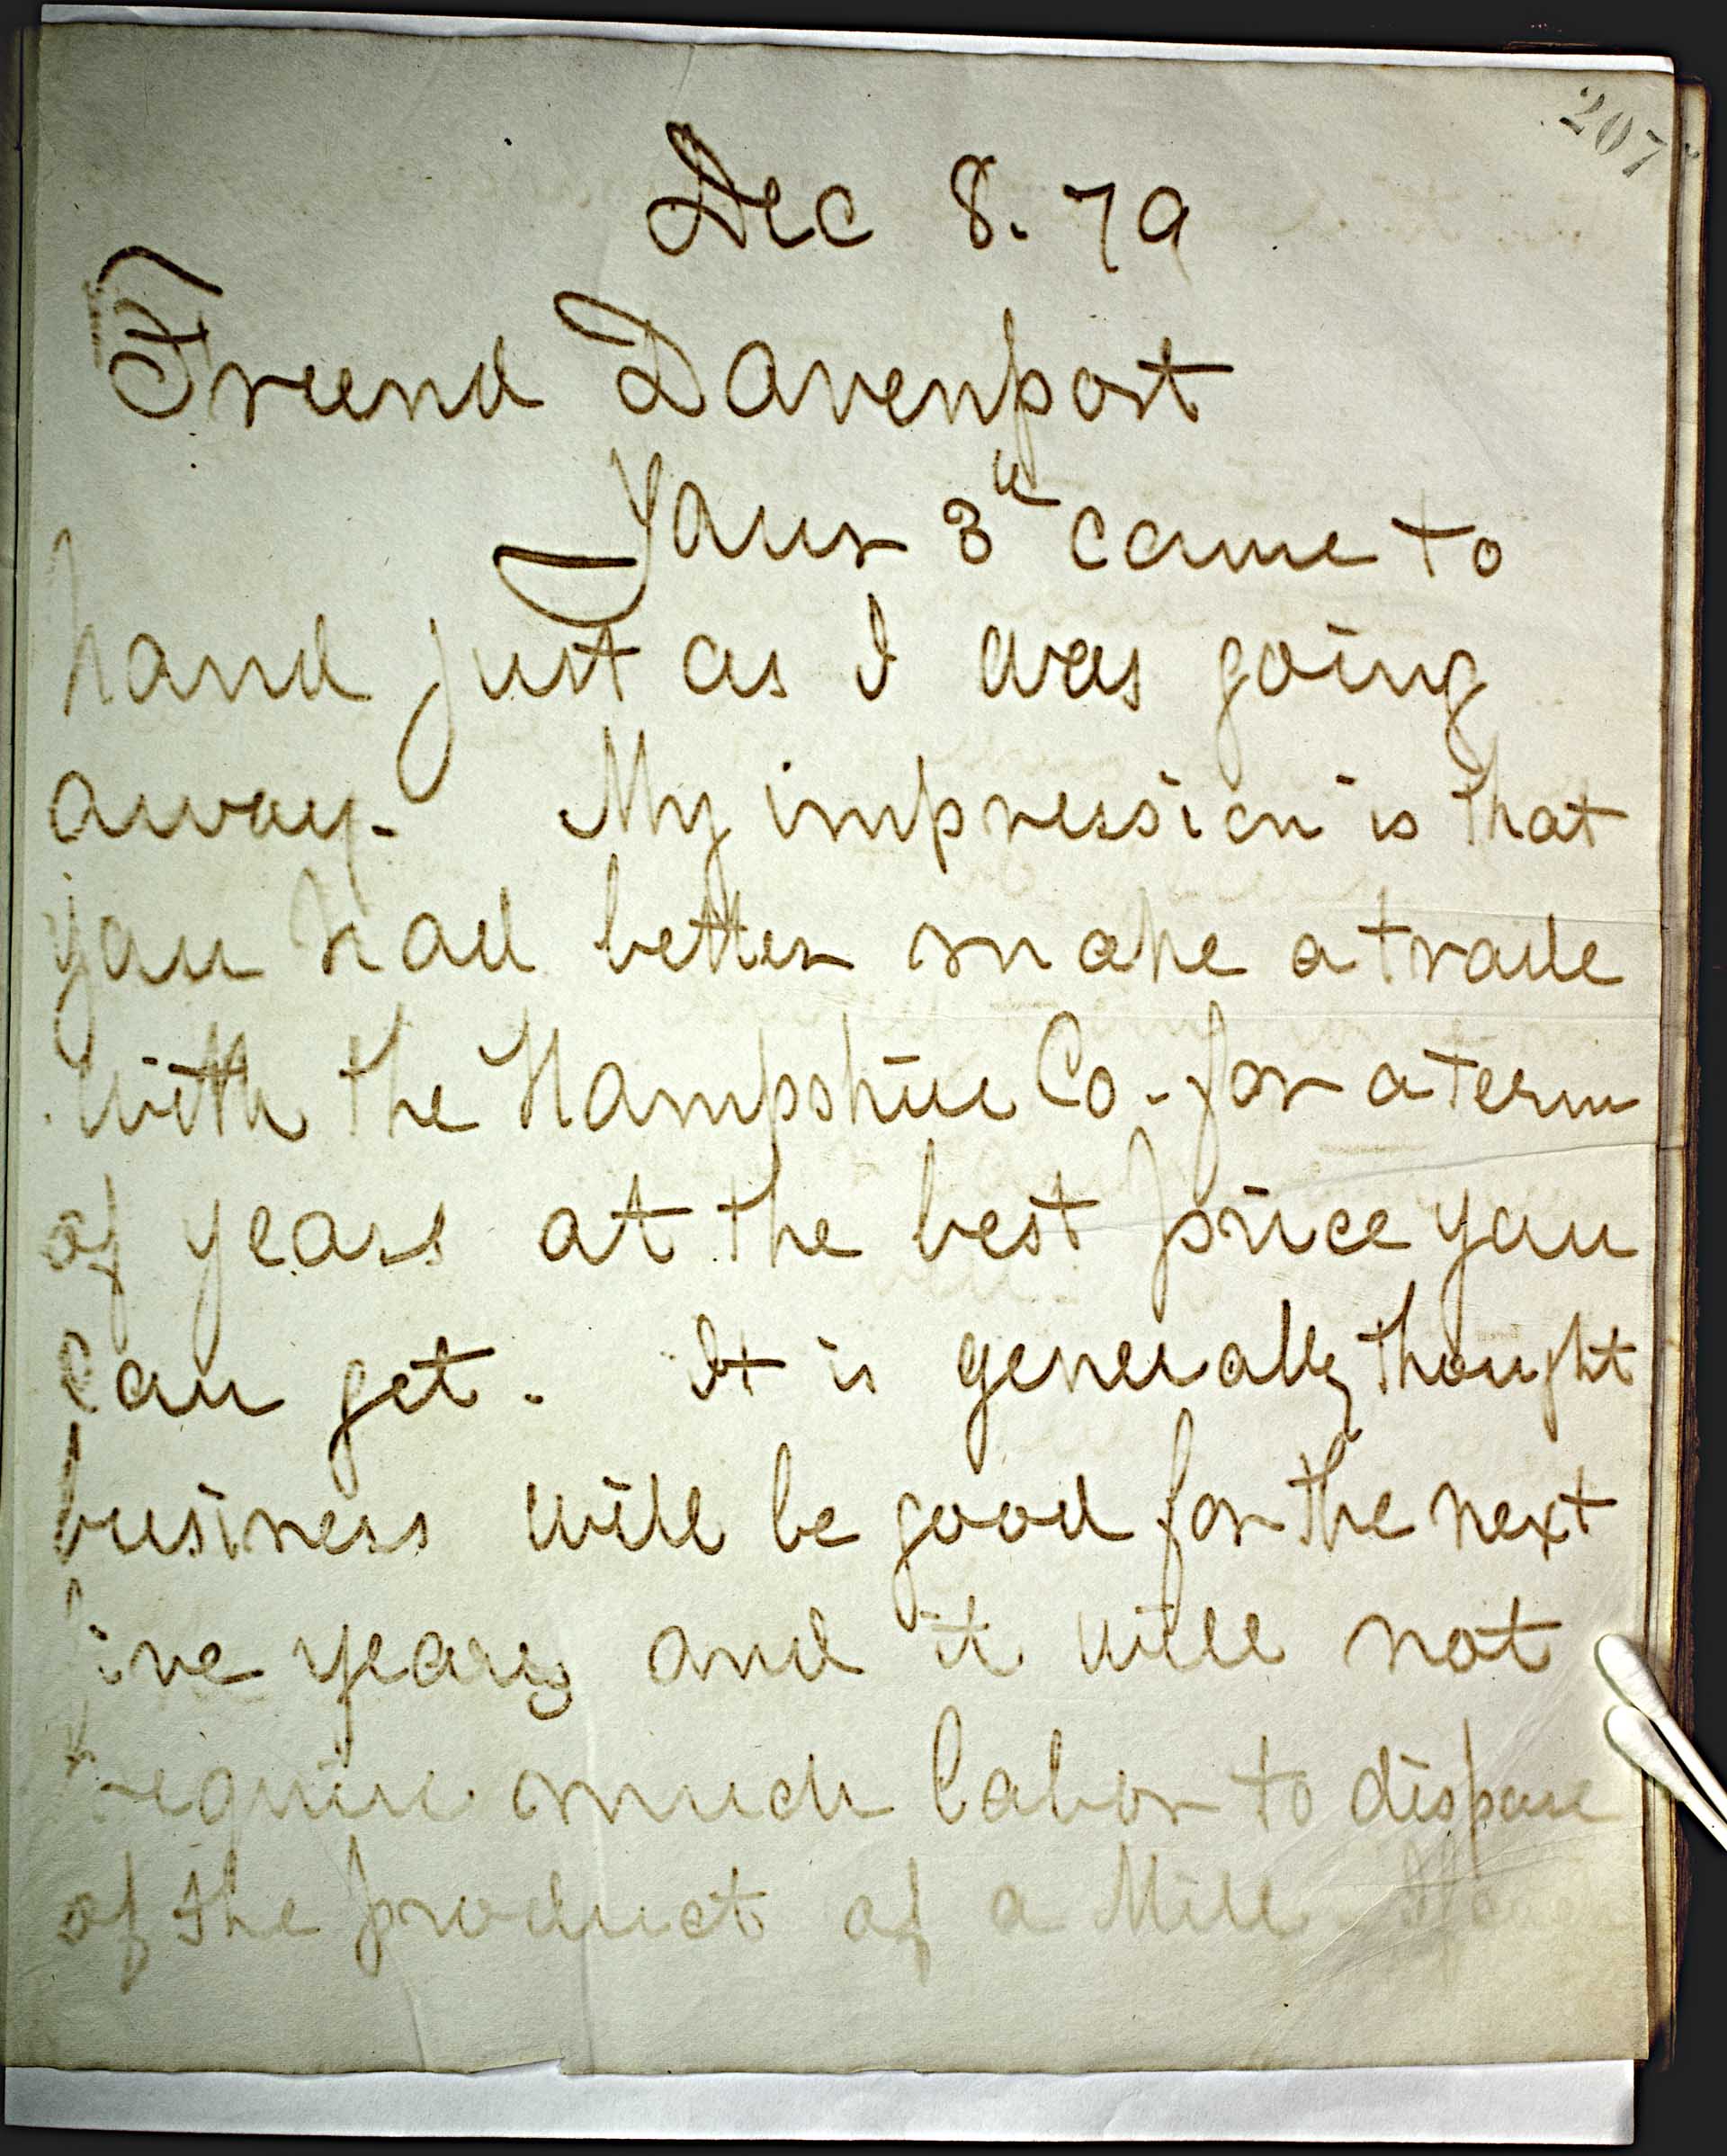 207
Dec 8. 79
Friend Davenport
Yours 3d came to
hand just as I was going
away. My impression is that
you had better make a trade
with the Hampshire Co. for a term
of years at the best price you
can get. It is generally thought
business will be good for the next
five years and it will not
require much labor to dispose
of the product of a Mill